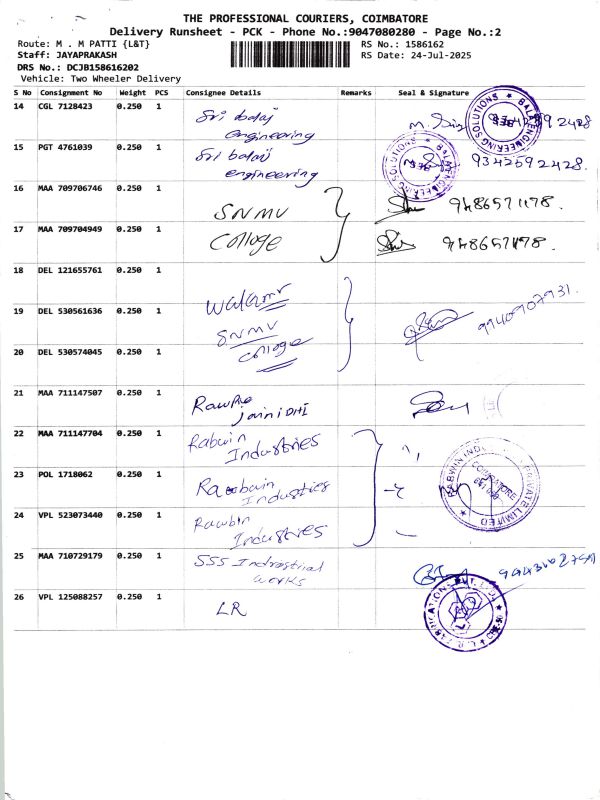 THE PROFESSIONAL COURIERS, COIMBATORE
Delivery Runsheet - PCK - Phone No.:9047080280 - Page No.:2
Route: M . M PATTI {L&T} RS No.: 1586162
Staff: JAYAPRAKASH RS Date: 24-Jul-2025
DRS No.: DCJB158616202
Vehicle: Two Wheeler Delivery
S No Consignment No Weight PCS Consignee Details Remarks Seal & Signature
14 CGL 7128423 0.250 1 Sri balaji
engineering
15 PGT 4761039 0.250 1 Sri balaji 9342592428.
engineering
16 MAA 709706746 0.250 1 SNMV 9486571178.
17 MAA 709704949 0.250 1 College 9486571178.
18 DEL 121655761 0.250 1
19 DEL 530561636 0.250 1 SNMV 9940907931.
20 DEL 530574045 0.250 1 College
21 MAA 711147507 0.250 1
22 MAA 711147704 0.250 1 Rabwin
Industries
23 POL 1718062 0.250 1 Industies
24 VPL 523073440 0.250 1 Rawbin
Industries
RABWIN INDUSTRIES PRIVATE LIMITED
COIMBATORE
25 MAA 710729179 0.250 1 SSS Indrostrial
works
26 VPL 125088257 0.250 1 LR